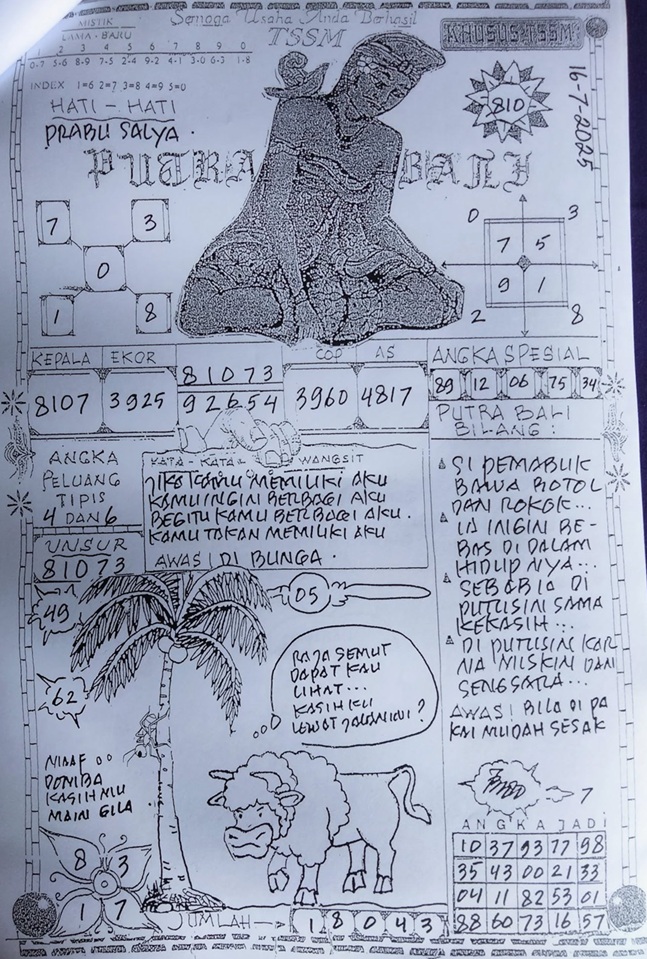 MISTIK
LAMA - BARU
1 2 3 4 5 6 7 8 9 0
0-7 5-6 8-9 7-5 2-4 9-2 4-1 3-0 6-3 1-8
INDEX 1=6 2=7 3=8 4=9 5=0
HATI - HATI
PRABU SALYA .
Semoga Usaha Anda Berhasil
TSSM
KHUSUS TSSM
810
16-7-2025
PUTRA BALI
7 3
0
1 8
0 3
7 5
9 1
2 8
KEPALA EKOR
8107 3925
81073
92654
COP AS
3960 4817
ANGKA SPESIAL
89 12 06 75 34
PUTRA BALI
BILANG :
SI PEMABUK
BAWA BOTOL
DAN ROKOK...
IA INGIN BE-
BAS DI DALAM
HIDUP NYA...
SEBAB IA DI
PUTUSIN SAMA
KEKASIH...
DI PUTUSIN KAR
NA MISKIN DAN
SENGSARA...
AWAS! BILA DI PA
KAI MUDAH SESAK
ANGKA
PELUANG
TIPIS
4 DAN 6
UNSUR
81073
KATA - KATA WANGSIT
JIKA KAMU MEMILIKI AKU
KAMU INGIN BERBAGI AKU
BEGITU KAMU BERBAGI AKU.
KAMU TAKAN MEMILIKI AKU
AWAS! DI BUNGA .
49
05
62
RAJA SEMUT
DAPAT KAU
LIHAT...
KASIH KU
LEWAT JALAN INI ?
DOMBA
KASIH MU
MAIN GILA
8 3
1 7
JUMLAH
1 8 0 4 3
7
ANGKA JADI
10 37 93 77 98
35 43 00 21 33
04 11 82 53 01
88 60 73 16 57